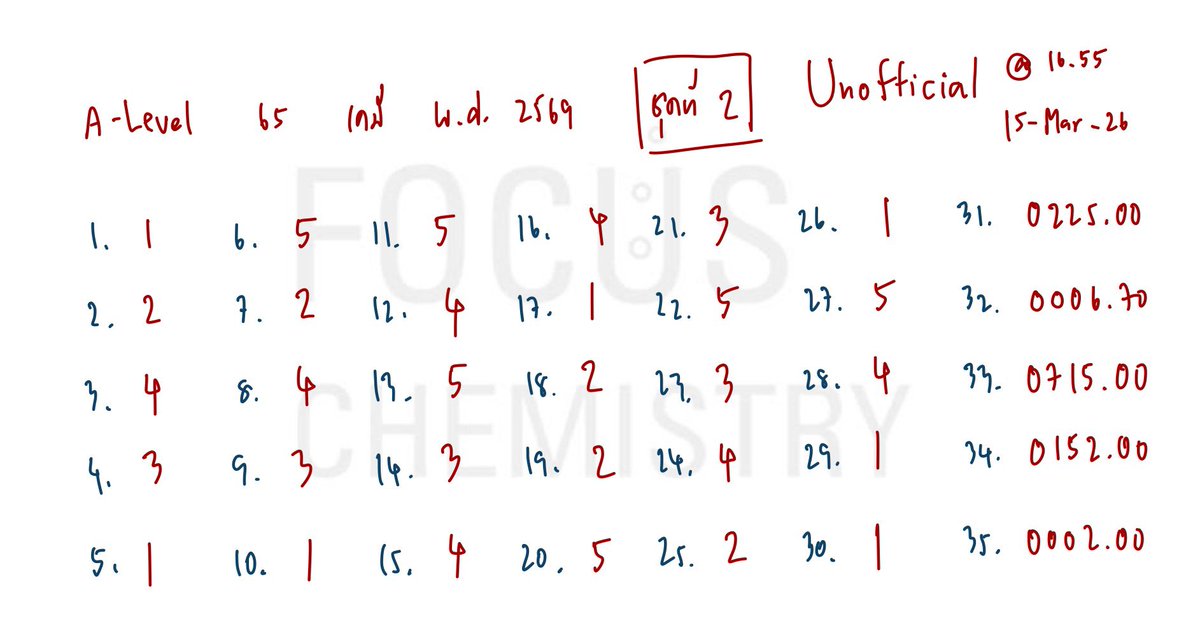 A-Level 65 เคมี พ.ศ. 2569 ชุดที่ 2 Unofficial @ 16.55
15-Mar-26
FOCUS
CHEMISTRY
1. 1 6. 5 11. 5 16. 4 21. 3 26. 1 31. 0225.00
2. 2 7. 2 12. 4 17. 1 22. 5 27. 5 32. 0006.70
3. 4 8. 4 13. 5 18. 2 23. 3 28. 4 33. 0715.00
4. 3 9. 3 14. 3 19. 2 24. 4 29. 1 34. 0152.00
5. 1 10. 1 15. 4 20. 5 25. 2 30. 1 35. 0002.00